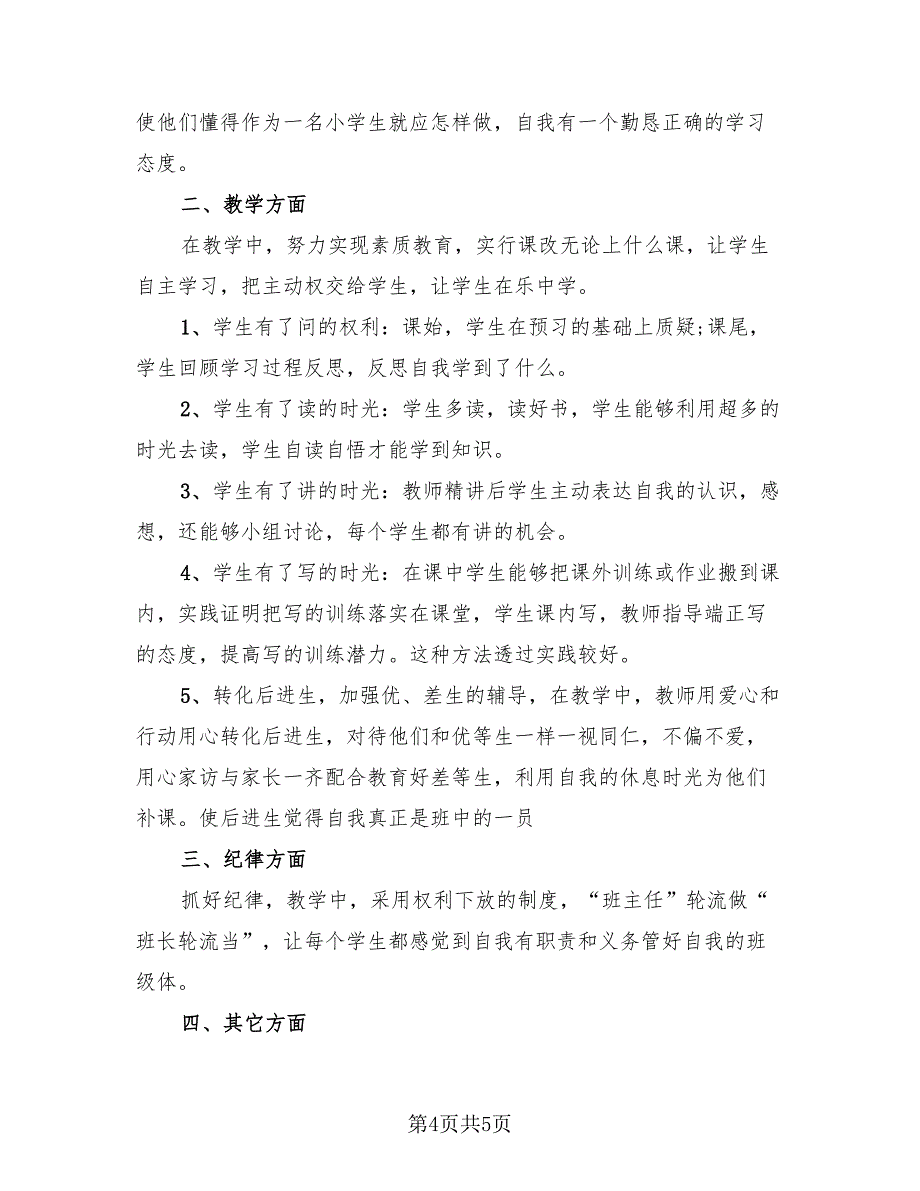 使他们懂得作为一名小学生就应怎样做，自我有一个勤恳正确的学习
态度。
二、教学方面
在教学中，努力实现素质教育，实行课改无论上什么课，让学生
自主学习，把主动权交给学生，让学生在乐中学。
1、学生有了问的权利：课始，学生在预习的基础上质疑;课尾，
学生回顾学习过程反思，反思自我学到了什么。
2、学生有了读的时光：学生多读，读好书，学生能够利用超多的
时光去读，学生自读自悟才能学到知识。
3、学生有了讲的时光：教师精讲后学生主动表达自我的认识，感
想，还能够小组讨论，每个学生都有讲的机会。
4、学生有了写的时光：在课中学生能够把课外训练或作业搬到课
内，实践证明把写的训练落实在课堂，学生课内写，教师指导端正写
的态度，提高写的训练潜力。这种方法透过实践较好。
5、转化后进生，加强优、差生的辅导，在教学中，教师用爱心和
行动用心转化后进生，对待他们和优等生一样一视同仁，不偏不爱，
用心家访与家长一齐配合教育好差等生，利用自我的休息时光为他们
补课。使后进生觉得自我真正是班中的一员
三、纪律方面
抓好纪律，教学中，采用权利下放的制度，“班主任”轮流做“
班长轮流当”，让每个学生都感觉到自我有职责和义务管好自我的班
级体。
四、其它方面
第4页共5页